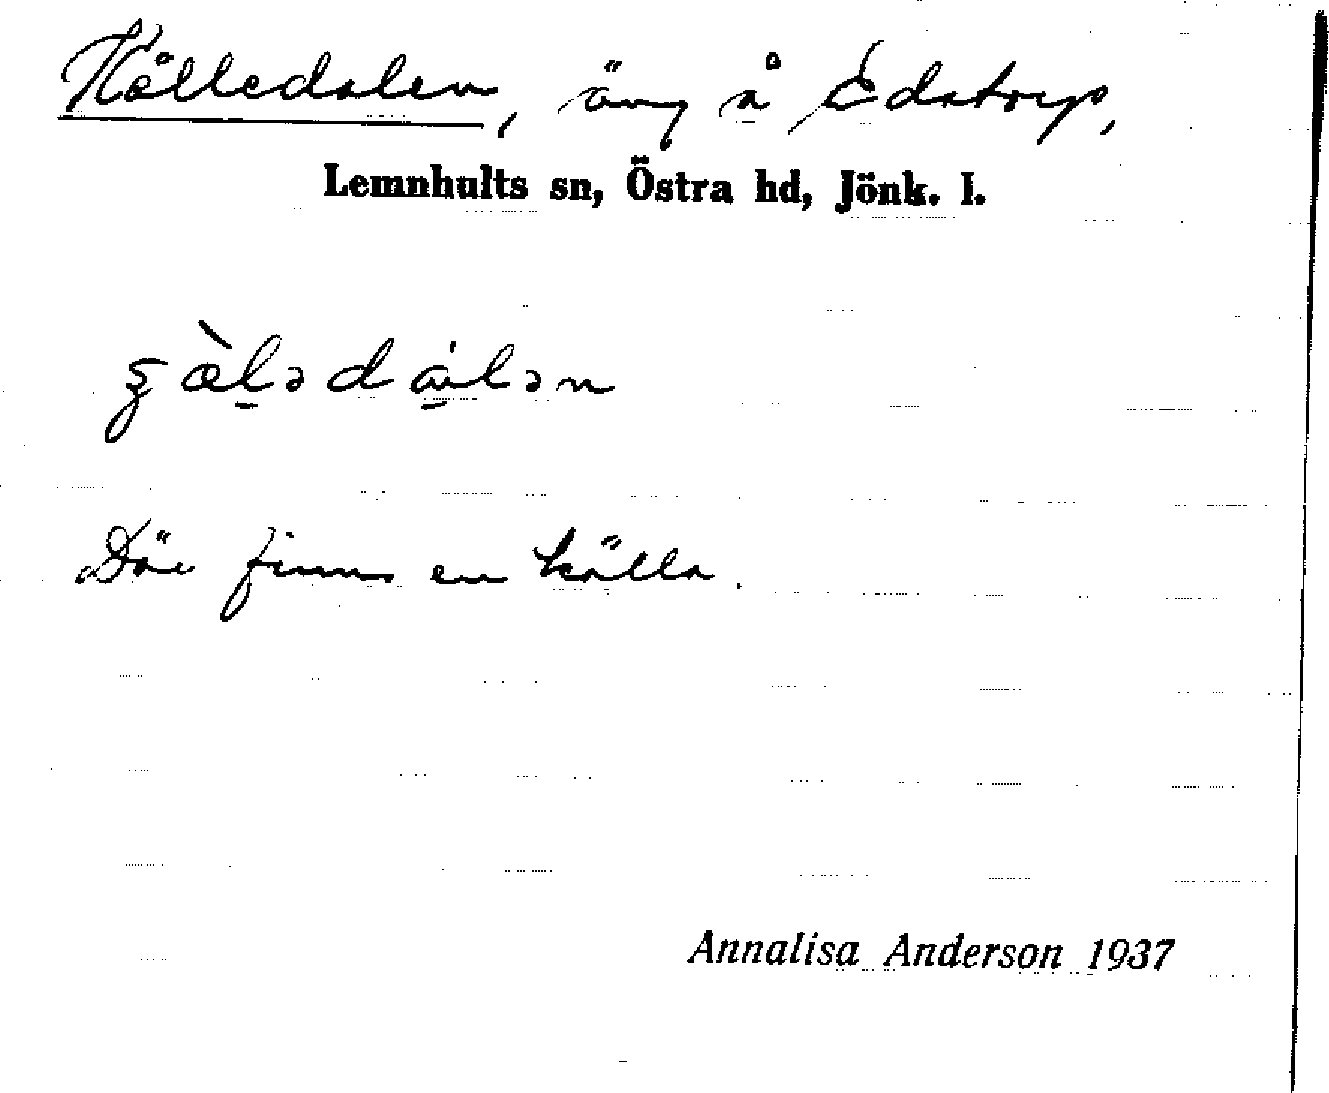 Källedalen, äng å Edstorp,
Lemnhults sn, Östra hd, Jönk. l.
Där finns en källa.
Annalisa Anderson 1937